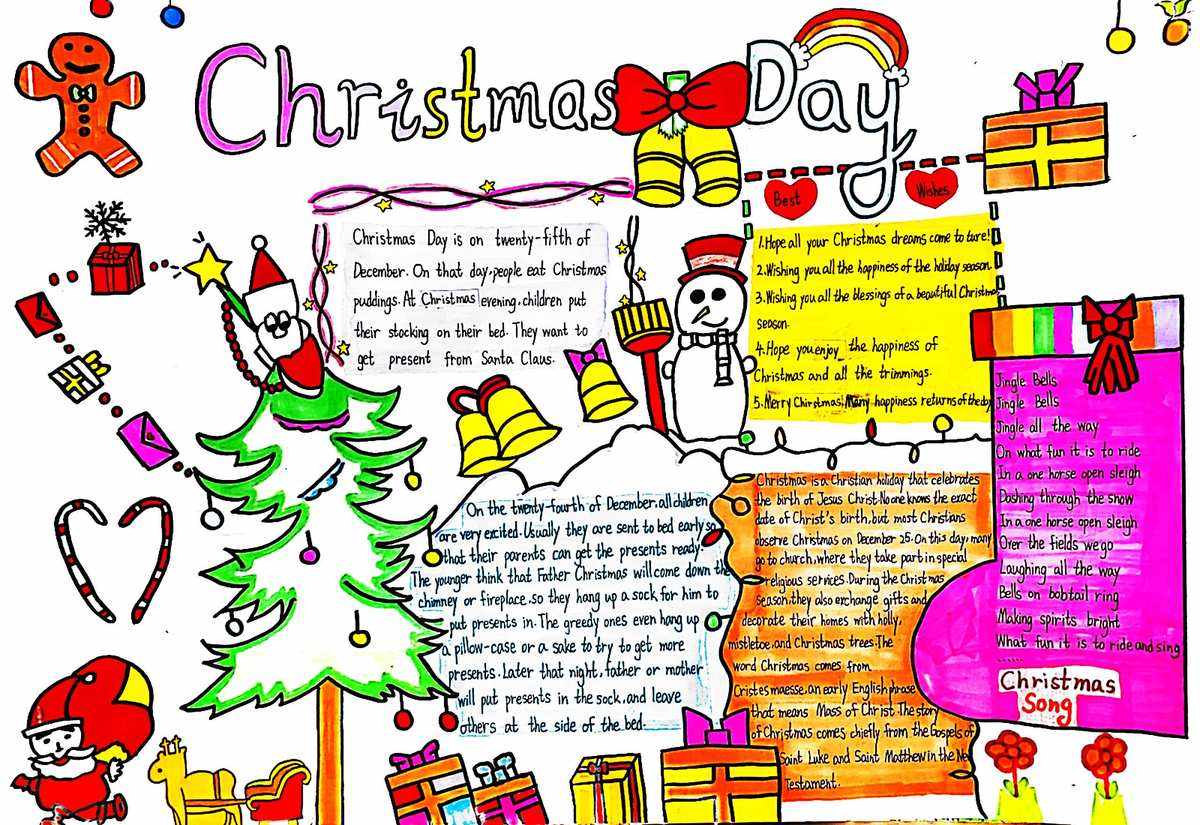 Christmas Day
Christmas Day is on twenty-fifth of
December. On that day, people eat Christmas
puddings. At Christmas evening, children put
their stocking on their bed. They want to
get present from Santa Claus.
Best Wishes
1. Hope all your Christmas dreams come to ture!
2. Wishing you all the happiness of the holiday season.
3. Wishing you all the blessings of a beautiful Christmas
season.
4. Hope you enjoy the happiness of
Christmas and all the trimmings.
5. Merry Christmas! Many happiness returns of the day
On the twenty-fourth of December, all children
are very excited. Usually they are sent to bed early so
that their parents can get the presents ready.
The younger think that Father Christmas will come down the
chimney or fireplace, so they hang up a sock for him to
put presents in. The greedy ones even hang up
a pillow-case or a sake to try to get more
presents. Later that night, father or mother
will put presents in the sock, and leave
others at the side of the bed.
Christmas is a Christian holiday that celebrates
the birth of Jesus Christ. No one knows the exact
date of Christ's birth, but most Christians
observe Christmas on December 25. On this day, many
go to church, where they take part in special
religious services. During the Christmas
season, they also exchange gifts and
decorate their homes with holly,
mistletoe, and Christmas trees. The
word Christmas comes from
Cristes maesse, an early English phrase
that means Mass of Christ. The story
of Christmas comes chiefly from the Gospels of
Saint Luke and Saint Motthew in the New
Testament.
Jingle Bells
Jingle Bells
Jingle all the way
On what fun it is to ride
In a one horse open sleigh
Dashing through the snow
In a one horse open sleigh
Over the fields we go
Laughing all the way
Bells on bobtail ring
Making spirits bright
What fun it is to ride and sing
......
Christmas
Song